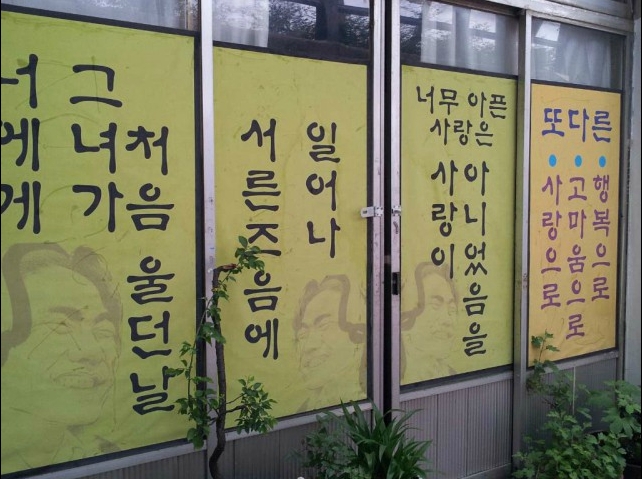 너에게
그녀가
처음 울던 날
서른즈음에
일어나
너무 아픈
사랑은
사랑이
아니었음을
또다른
사랑으로
고마움으로
행복으로